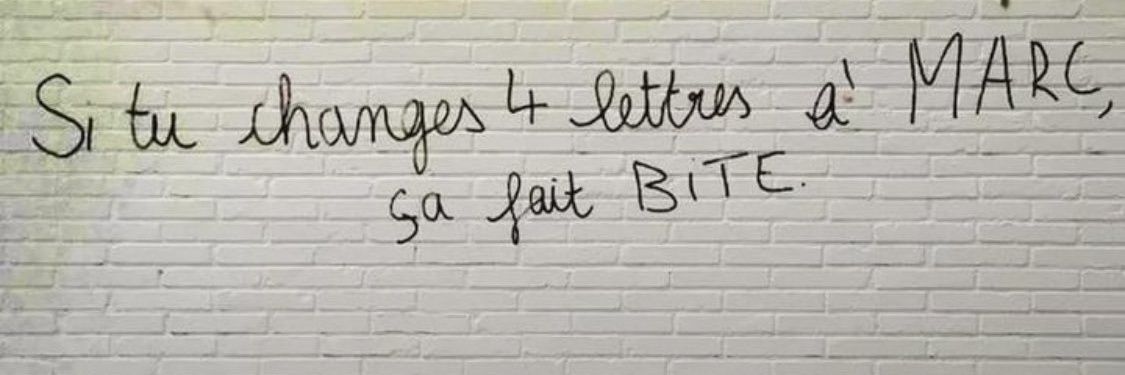 Si tu changes 4 lettres à MARC,
ça fait BiTE.